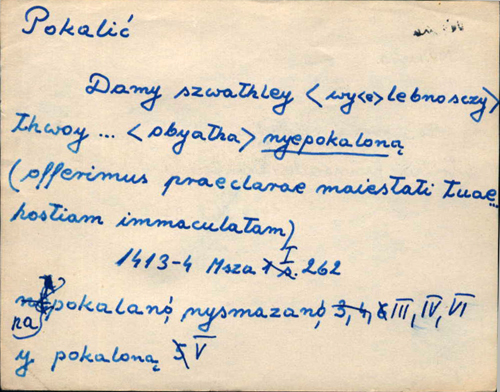 Pokalić
Damy szwathley <wy<e>lebnosczy>
thwoy ... <obyatha> nyepokaloną
(offerimus praeclarae maiestati tuae...
hostiam immaculatam)
1413-4 Msza I s. 262
pokalanó, nysmazanó, III, IV, VI
na
y pokaloną V